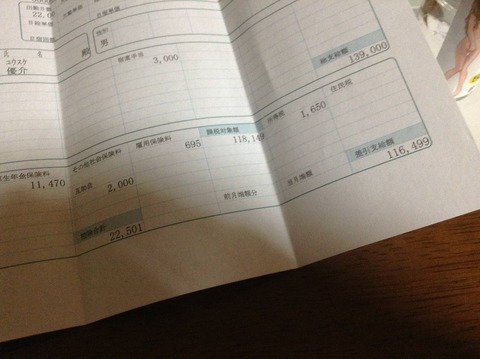 出勤日数
22.0
日給単価
日度回数
氏 名
ユウスケ
優介
殿
性別
男
3,000
総支給額
139,000
厚生年金保険料
11,470
その他社会保険料
雇用保険料
695
課税対象額
118,149
所得税
1,650
住民税
互助会
2,000
控除合計
22,501
前月端額分
当月端額
差引支給額
116,499